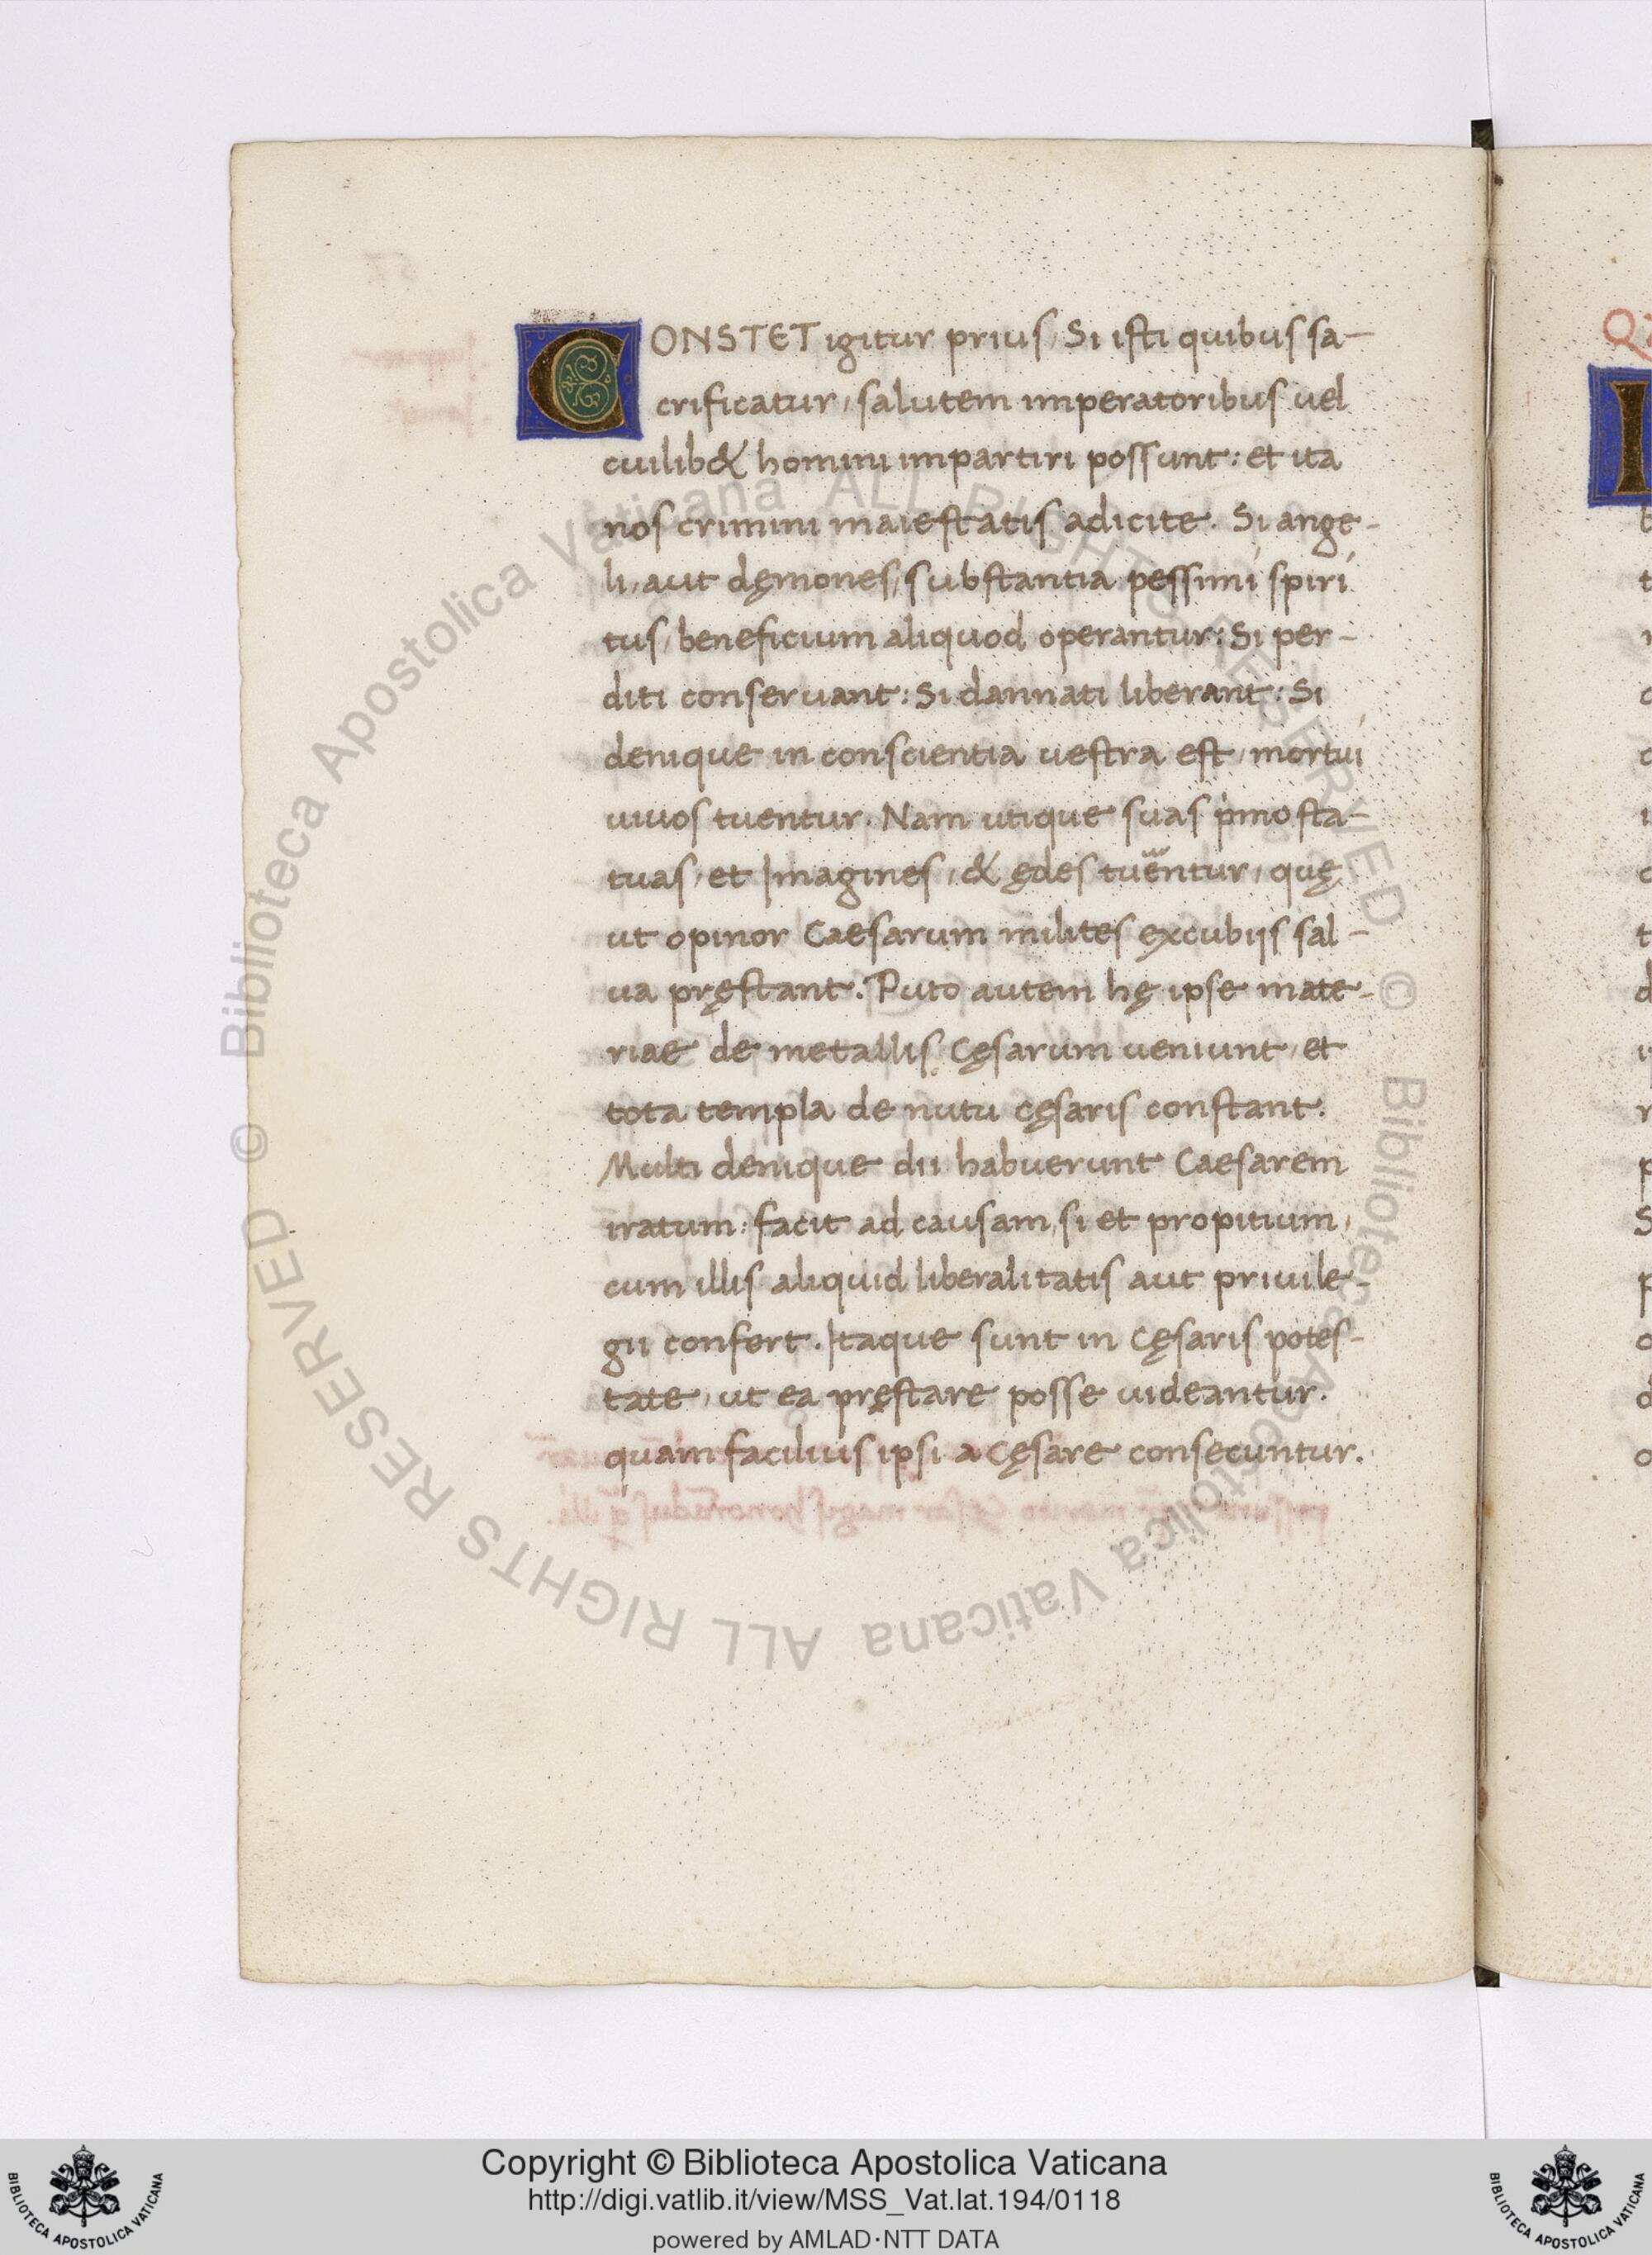 CONSTET igitur prius, Si isti quibus sa-
crificatur, salutem imperatoribus uel
cuilib& homini impartiri possunt: et ita
nos crimini maiestatis adicite. Si ange-
li, aut dęmones, substantia pessimi spiri
tus, beneficium aliquod operantur: Si per-
diti conseruant: Si dannati liberant: Si
denique in conscientia uestra est, mortui
uiuos tuentur. Nam utique suas pͥmo sta-
tuas, et Imagines, & ędes tuerentur, quę
ut opinor Caesarum milites excubijs sal-
ua pręstant. Puto autem hę ipse mate-
riae de metallis Cęsarum ueniunt, et
tota templa de nutu cęsaris constant.
Multi denique dii habuerunt Caesarem
iratum: facit ad causam, si et propitium,
cum illis aliquid liberalitatis aut priuile-
gii confert. Itaque sunt in Cęsaris potes-
tate, ut ea pręstare posse uideantur.
quam facilius ipsi a Cęsare consecuntur.
© Biblioteca Apostolica Vaticana ALL RIGHTS RESERVED © Biblioteca Apostolica Vaticana ALL RIGHTS RESERVED
Copyright © Biblioteca Apostolica Vaticana
http://digi.vatlib.it/view/MSS_Vat.lat.194/0118
powered by AMLAD·NTT DATA
BIBLIOTECA APOSTOLICA VATICANA
BIBLIOTECA APOSTOLICA VATICANA